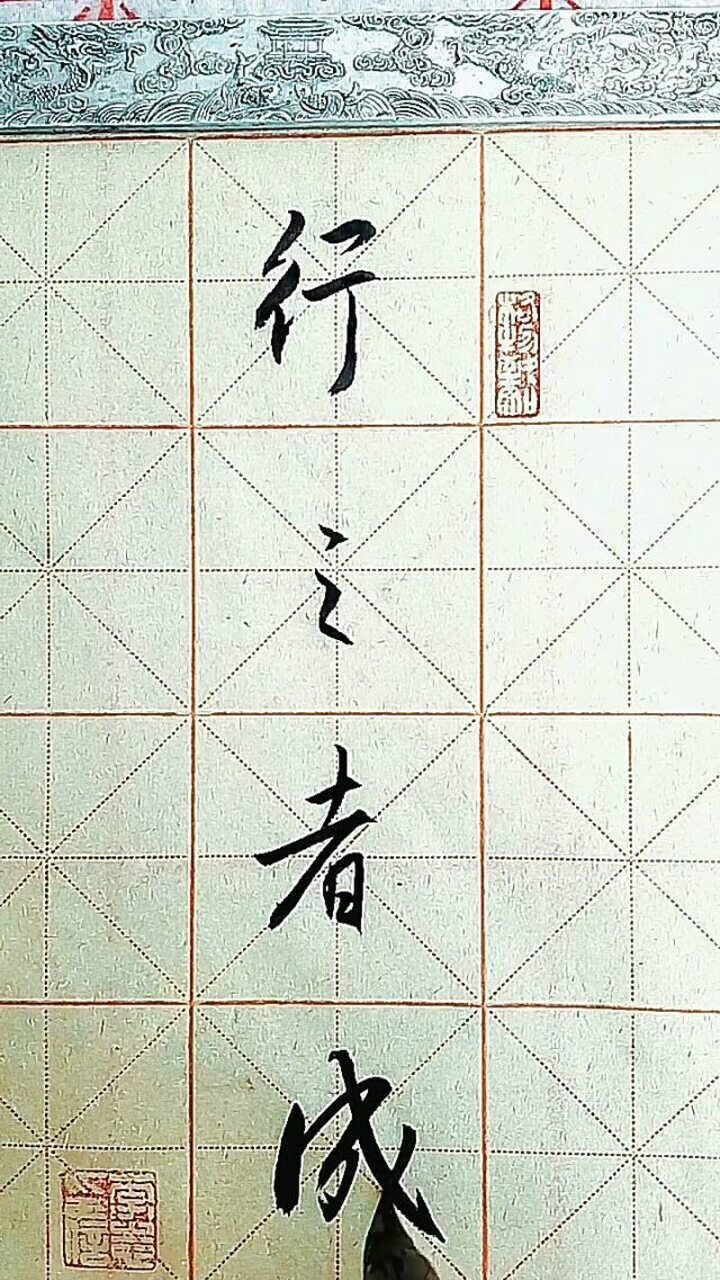 行之者成